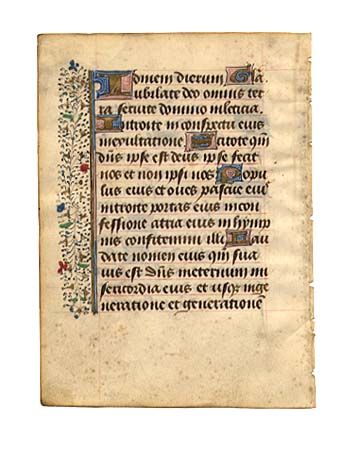 dierum Iu
bilate deo omnis ter
ra seruite domino in leticia
Introite in conspectu eius
in exultatione Scitote qm̄
dn̄s ipse est deus ipse fecit
nos et non ipsi nos Pop
ulus eius et oues pascue eius
introite portas eius in con
fessione atria eius in hymp
nis confitemini illi Lau
date nomen eius qm̄ sua
uis est dn̄s in eternum mi
sericordia eius et usq̄ in ge
neratione et generationē